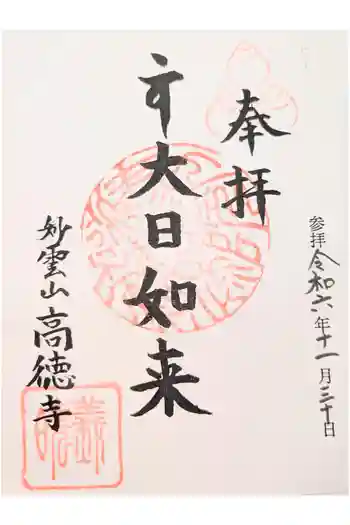 奉拝
大日如来
妙雲山高徳寺
参拝 令和六年十一月三十日